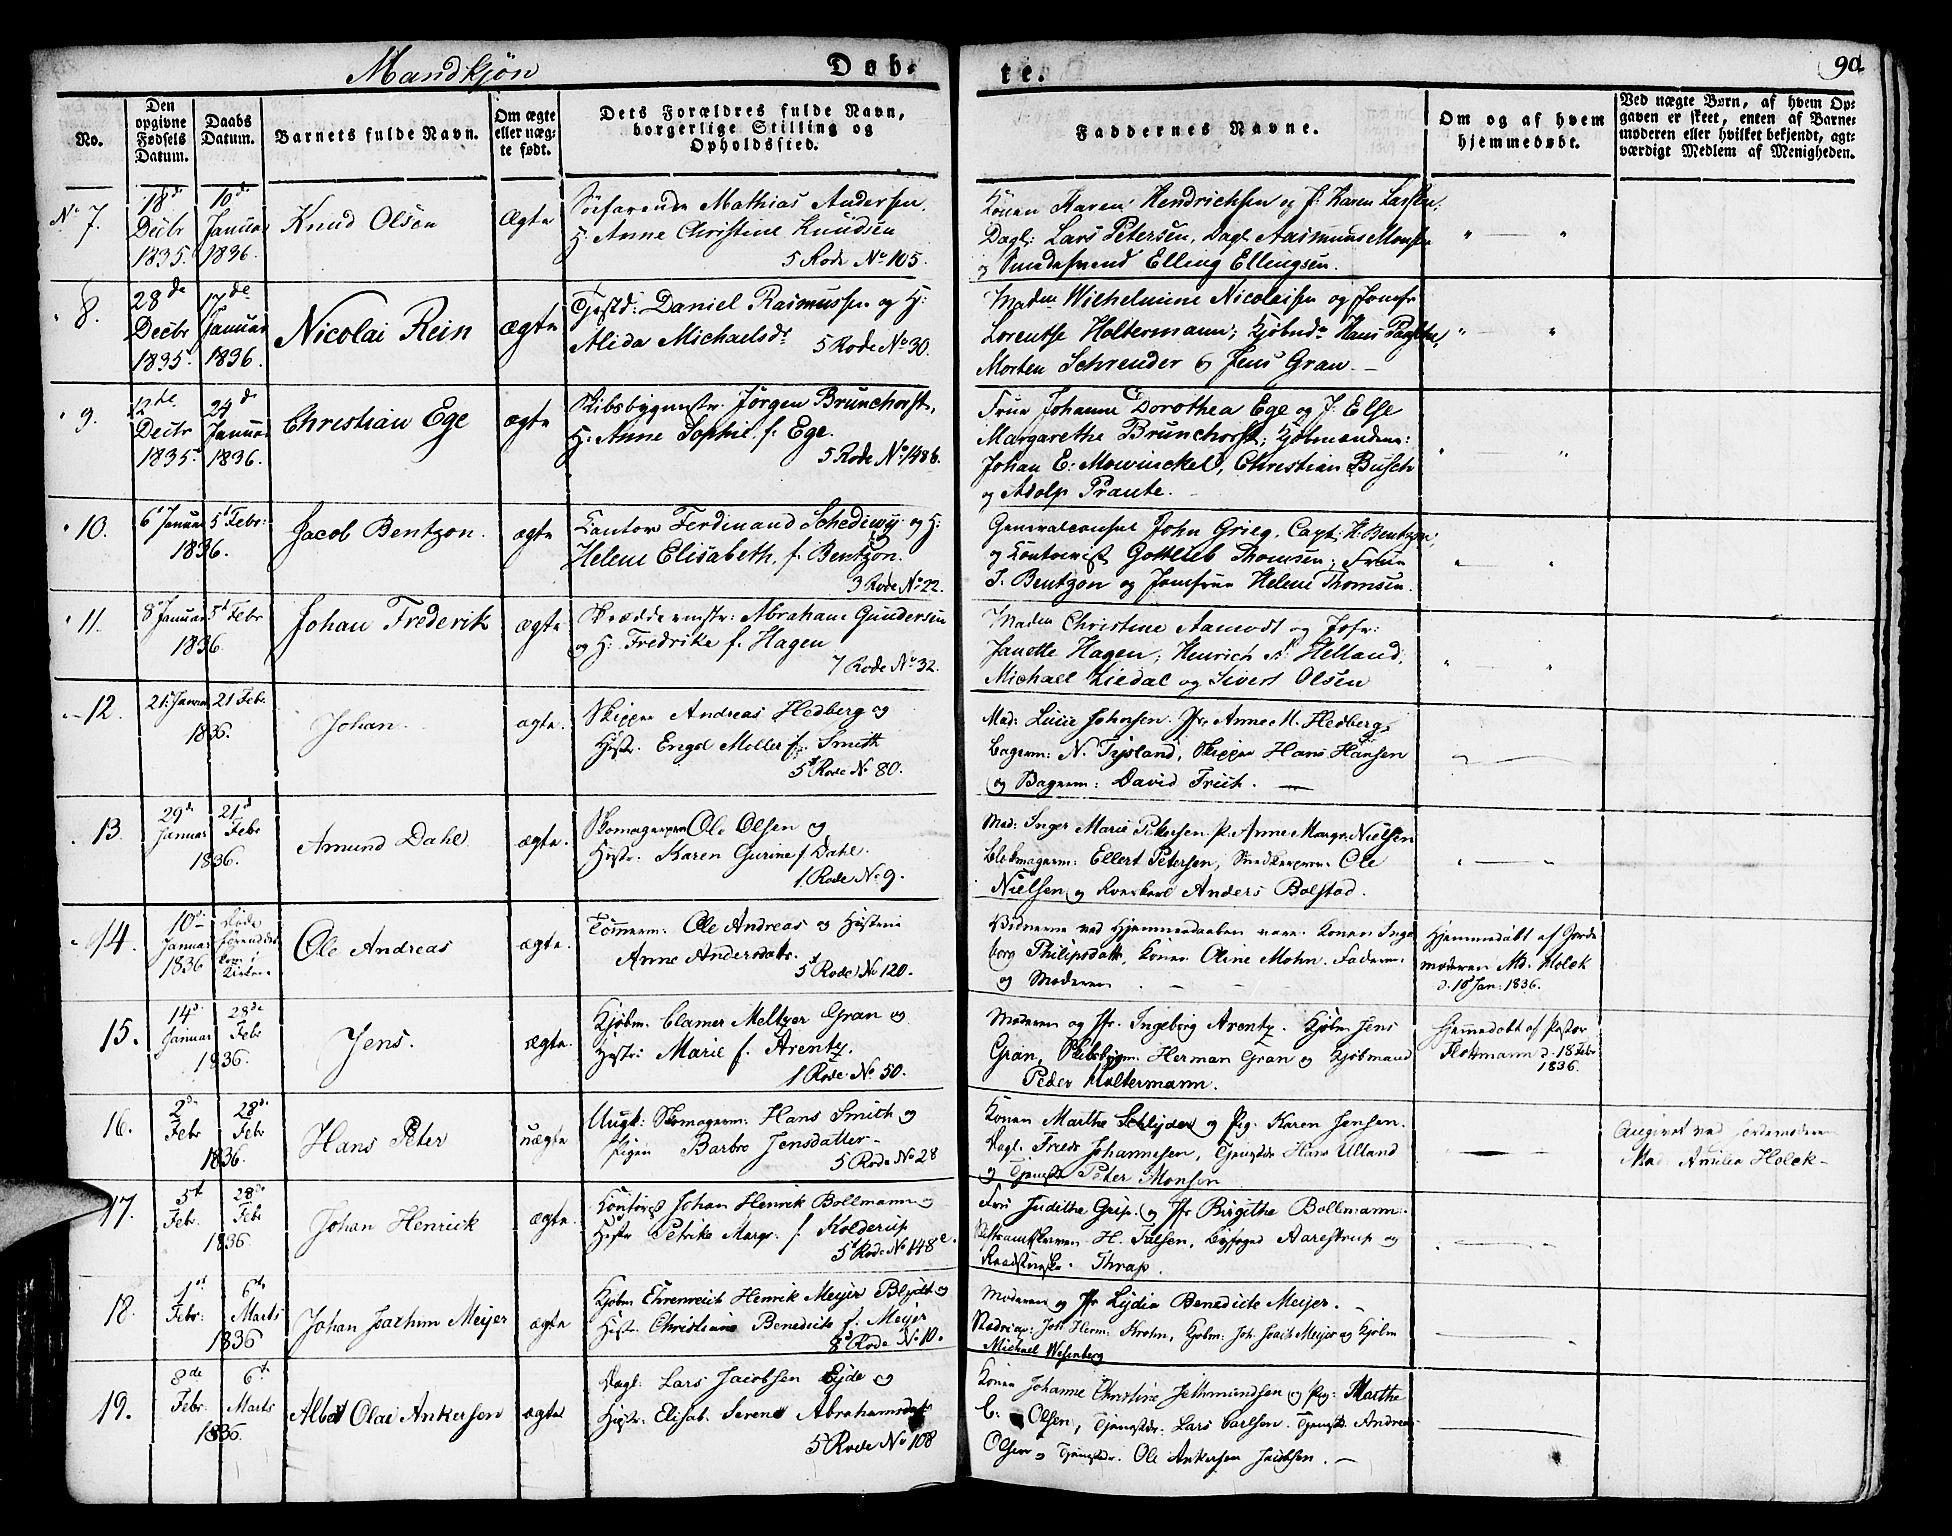 Mandkjøn
Døb-
te.
90
No.
Den opgivne Fødsels Datum.
Daabs Datum.
Barnets fulde Navn.
Om ægte eller næg-te født.
Dets Forældres fulde Navn, borgerlige Stilling og Opholdssted.
Faddernes Navne.
Om og af hvem hjemmedøbt.
Ved nægte Børn, af hvem Op-gaven er skeet, enten af Barne-moderen eller hvilket bekjendt, agt-værdigt Medlem af Menigheden.
No 7.
18de Decbr 1835.
10de Januar 1836.
Knud Olsen
Ægte
Søefarende Mathias Andersen,
H. Anne Christine Knudsen
5 Rode No 105.
Konen Karen Hendrichsen og P: Karen Larsen,
Dagl: Lars Petersen, Dagl Aasmund Monsen
og Smedesvend Elling Ellingsen.
" — "
" 8.
28de Decbr 1835.
17de Januar 1836.
Nicolai Rein
ægte
Daniel Rasmussen og H:
Alida Michaelsdr
5 Rode No 30.
Madm Wilhelmine Nicolaisen og Jomfr
Lorentse Holtermann; Kjøbmd Hans
Morten Schreuder & Jens Gran. —
" — "
" 9.
12de Decbr 1835
24de Januar 1836.
Christian Ege
ægte
Skibsbygmstr. Jørgen Brunchorst,
H: Anne Sophie f. Ege.
5 Rode No 148 b.
Frue Johanne Dorothea Ege og J. Else
Margarethe Brunchorst; Kjøbmændene:
Johan E. Mowinckel, Christian Busch
og Adolp Praute.
" — "
" 10.
6t Januar
5t Febr:
1836.
Jacob Bentzon.
ægte
Cantor Ferdinand Schediwy og H:
Helene Elisabeth, f. Bentzon.
3 Rode No 22.
Generalconsul John Grieg, Capt: H. Bentzon,
og Contorist Gottlieb Thomsen; Frue
S. Bentzon og Jomfrue Helene Thomsen.
" — "
" 11.
8t Januar
5t Febr
1836.
Johan Frederik
ægte
Skræddermstr: Abraham Gundersen
og H: Fredrike f. Hagen
7 Rode No 32.
Madm Christine Aamodt og Jofr:
Janette Hagen; Henrich Helland,
Michael Liedal og Sivert Olsen
" — "
" 12.
21t Januar
21 Febr.
1836.
Johan.
ægte.
Skipper Andreas Hedberg og
Hustr. Engel Møller f. Smith
5t Rode No 80.
Mad: Lucie Johnsen. Jfr. Anne M. Hedberg,
Bagerm: N. Tysland, Skipper Hans Hansen
og Bagerm: David Trieh. —
" 13.
29de Januar
21d Febr
1836.
Amund Dahl
ægte.
Skomagersvend Ole Olsen og
Hustr. Karen Gurine f. Dahl.
1 Rode No 9.
Mad: Inger Marie Petersen. P: Anne Margr. Nielsen
Blokmagerm: Ellert Petersen, Snedkersvend Ole
Nielsen og Anders Bolstad.
" — "
" 14.
10de Januar 1836
Ole Andreas
ægte.
Tømmerm: Ole Andreas og Hustrue
Anne Andersdatr.
5d Rode No 120.
Vidnerne ved Hjemmedaaben vare: Konen Inge
borg Philipsdatr, Konen Oline Mohn. Faderen
og Moderen
Hjemmedøbt af Jorde
moderen Md. Holck
d. 10 Jan: 1836.
15.
14d Januar
28de Febr
1836.
Jens.
ægte.
Kjøbm. Clamer Meltzer Gran og
Hustr: Marie f. Arentz.
1 Rode No 50.
Moderen og Jfr. Ingeborg Arentz. Kjøbm Jens
Gran, Skibsbygm: Herman Gran og Kjøbmand
Peder Holtermann.
Hjemedøbt af Pastor
Flottmann d. 18 Febr
1836.
16.
2de Febr
28de Febr
1836.
Hans Peter
uægte
Ungk: Skomagerm: Hans Smith og
Pigen Barbro Jensdatter—
5 Rode No 28
Konen Marthe Schlyder og Pig. Karen Jensen.
Dagl. Fredr Johannesen, Tjenstdr Hans Ulland
og Tjenstdr Peter Monsen
Angivet ved Jordemoderen
Mad. Amilia Holck—
17.
5t Febr.
28de Febr
1836.
Johan Henrick
ægte.
Contorist Johan Henrik Bollmann og
Hustr Petrike Margr. f. Kolderup
5t Rode No 148 e.
Fru Judithe Grip. og Jfr Birgithe Bollmann.
H. Falsen, Byfoged Aarestrup og
Thrap.
18.
1st Febr:
6te Marts
1836
Johan Joachim Meijer
ægte
Kjøbm Ehrenreich Henrik Meyer Blydt og
Hustr. Christiane Benedicte f. Meijer
8d Rode No 10.
Moderen og Jfr Lydia Benedicte Meijer. —
Joh: Herm: Krohn, Kjøbm: Joh. Joach Meijer og Kjøbm
Michael Wesenberg
19.
8de Febr.
6te Marts
1836.
Albert Olai Ankersen
ægte
Dagl: Lars Jacobsen Eyde og
Hustr: Elisab. Serene Abrahamsdatr
5 Rode No 108
Konen Johanne Christine Jethmundsen og Pig: Marthe
C. Olsen, Tjenstdr. Lars Carlsen. Tjenstdr. Andreas
Olsen og Tjenstdr. Ole Ankersen Jacobsen. —